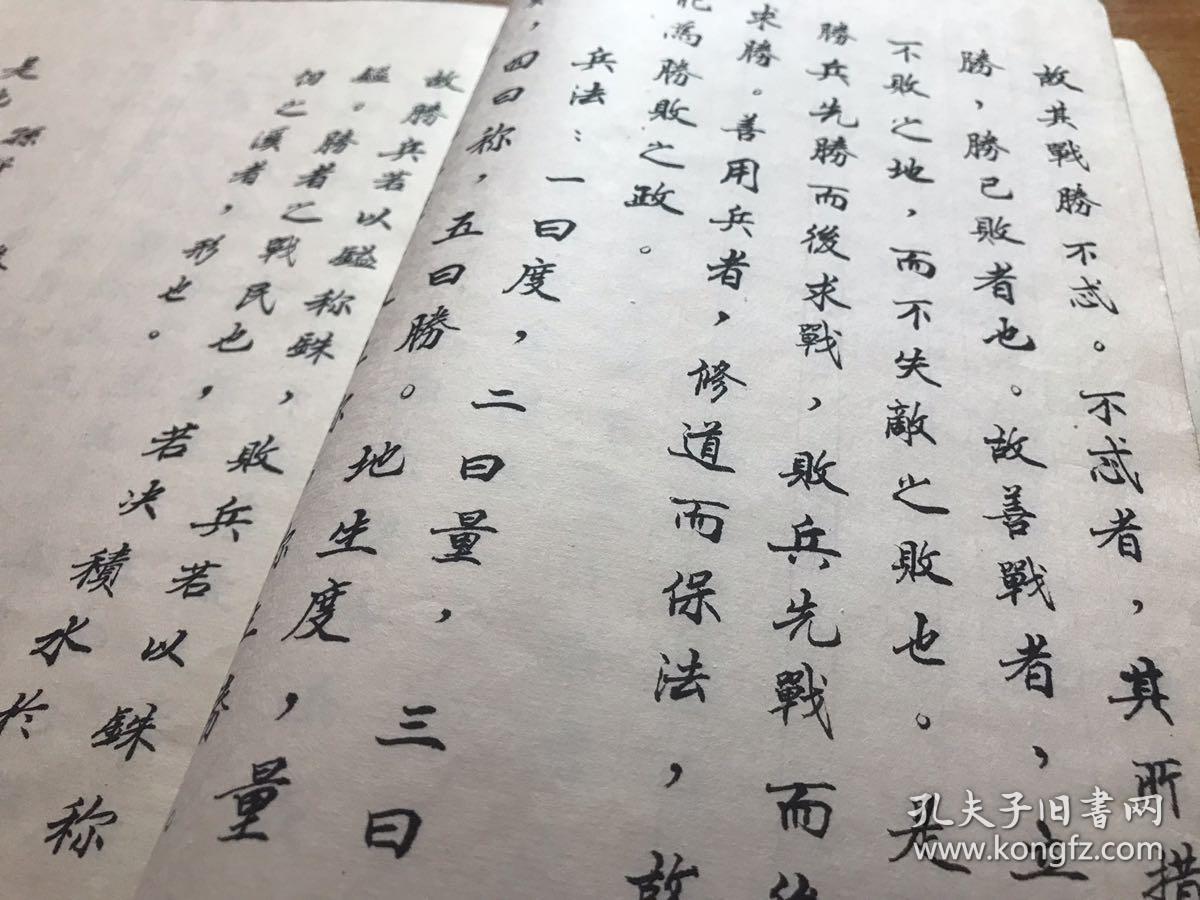 故其戰勝不忒。不忒者，其所措
勝，勝已敗者也。故善戰者，立
不敗之地，而不失敵之敗也。是
勝兵先勝而後求戰，敗兵先戰而後
求勝。善用兵者，修道而保法，故
能為勝敗之政。
兵法：一曰度，二曰量，三曰
，四曰称，五曰勝。地生度，量
故勝兵若以鎰称銖，敗兵若以銖称
鎰。勝者之戰民也，若决積水於
仞之溪者，形也。
是也孫
孔夫子旧书网
www.kongfz.com